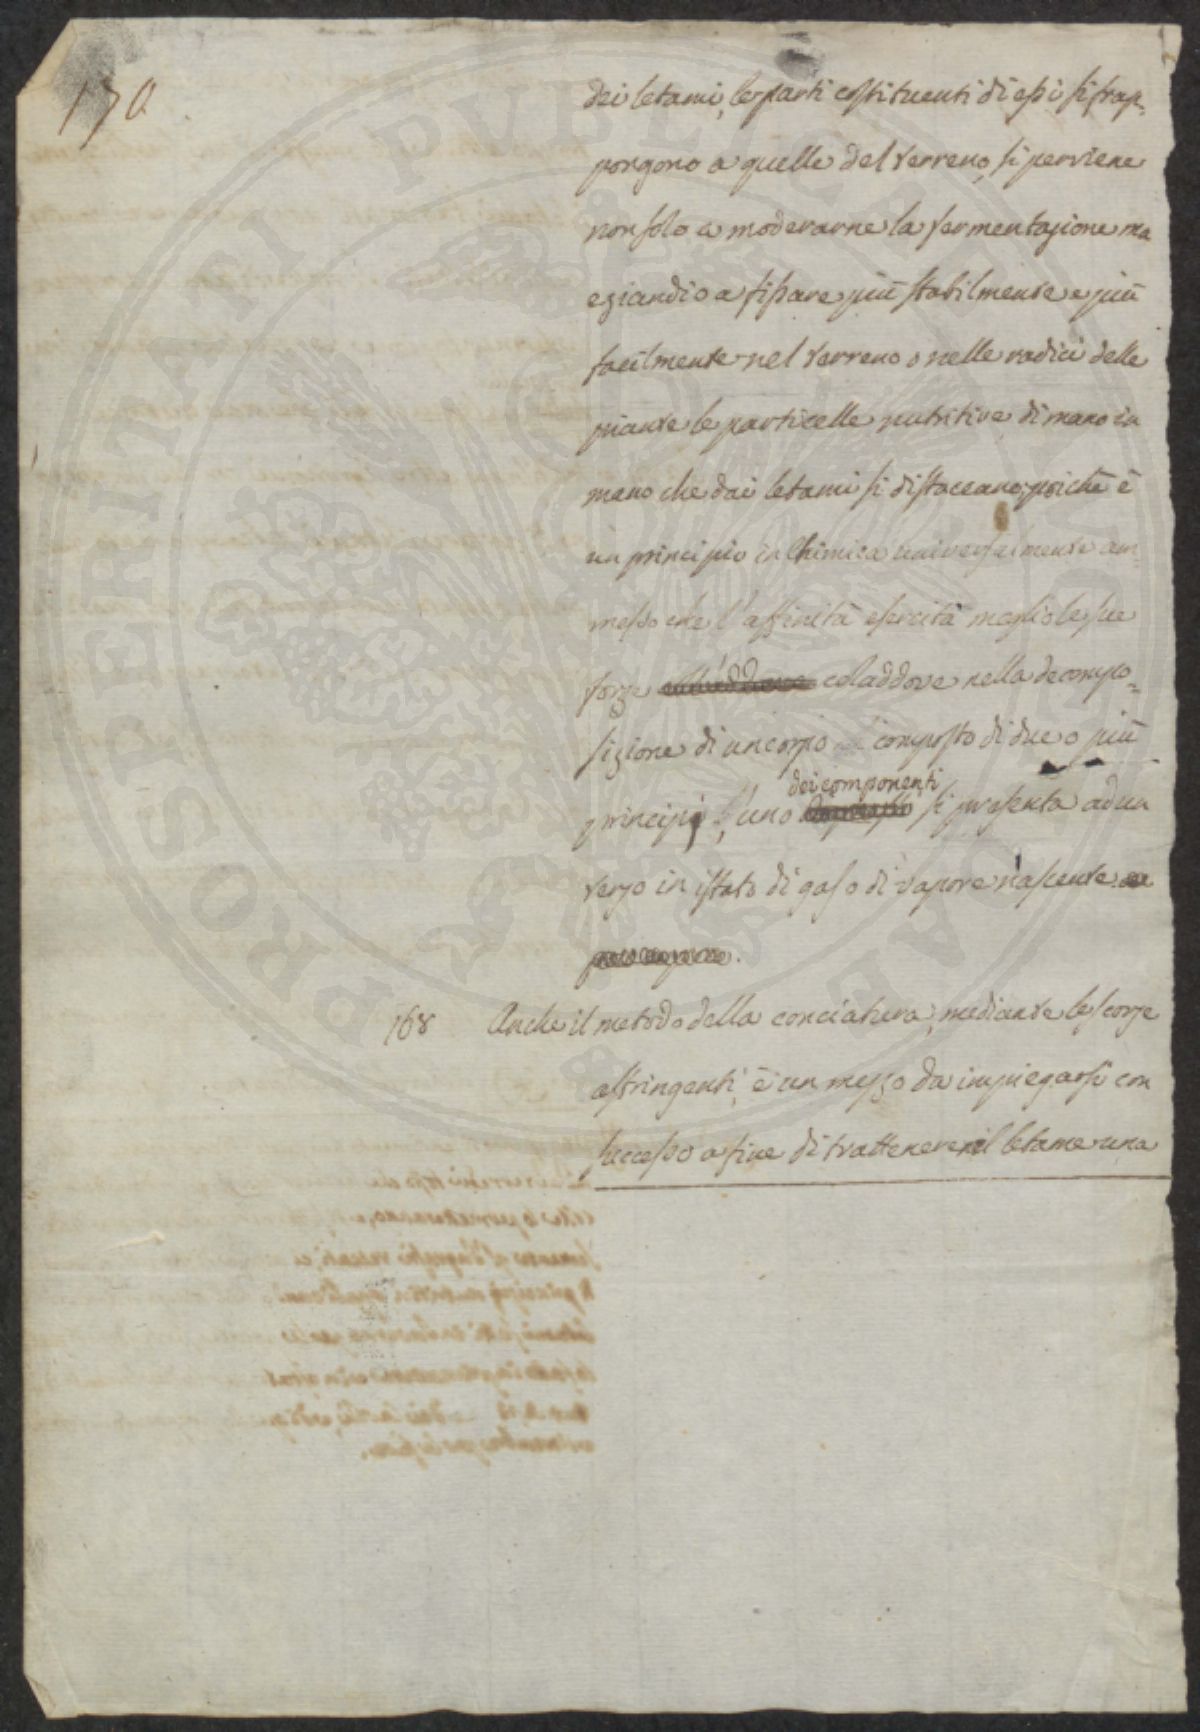 170
dei letami, le parti costituenti di essi si frap-
pongono a quelle del terreno, si perviene
non solo a moderarne la fermentazione ma
eziandio a fissare più stabilmente e più
facilmente nel terreno o nelle radici delle
piante le particelle nutritive di mano in
mano che dai letami si distaccano; poichè è
un principio in Chimica universalmente am-
messo che l'affinità esercita meglio le sue
forze coladdove nella decompo-
sizione di un corpo composto di due o più
dei componenti
principj l'uno si presenta ad un
terzo in istato di gas o di vapore nascente
168 Anche il metodo della conciatura, mediante le scorze
astringenti, è un mezzo da impiegarsi con
successo a fine di trattenere nel letame una
PROSPERITATI PVBLICAE